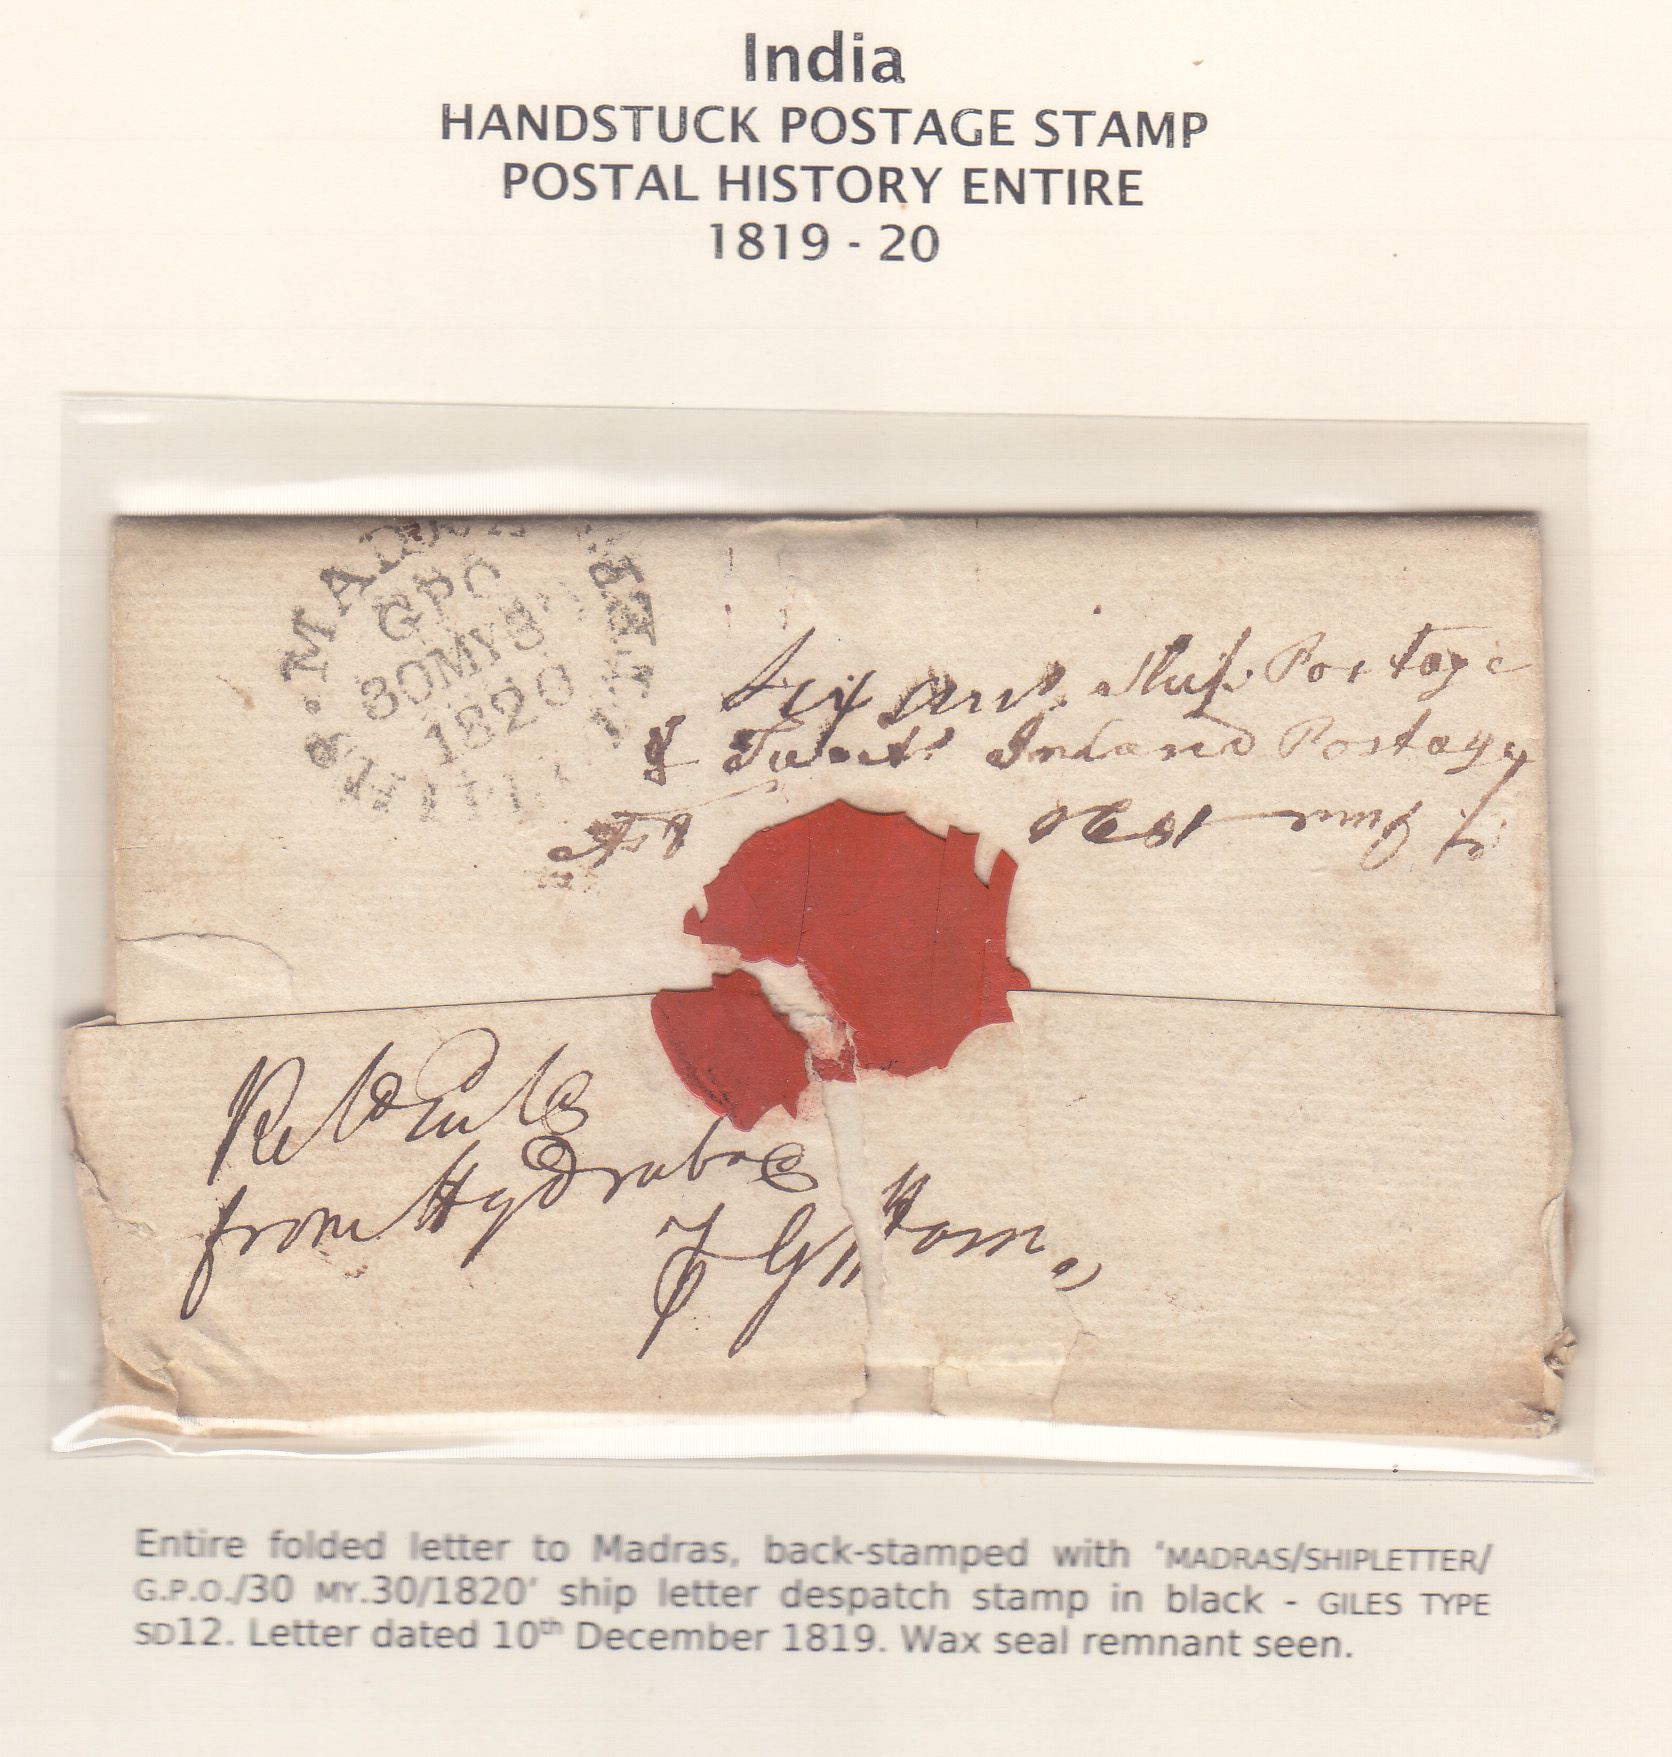 India
HANDSTUCK POSTAGE STAMP
POSTAL HISTORY ENTIRE
1819 - 20
MADRAS
GPO
30MY30
1820
SHIP LETTER
Six Ans. Ship Postage
& Inland Postage
1820
from Hydrabad
Entire folded letter to Madras, back-stamped with ‘MADRAS/SHIPLETTER/
G.P.O./30 MY.30/1820’ ship letter despatch stamp in black - GILES TYPE
SD12. Letter dated 10th December 1819. Wax seal remnant seen.